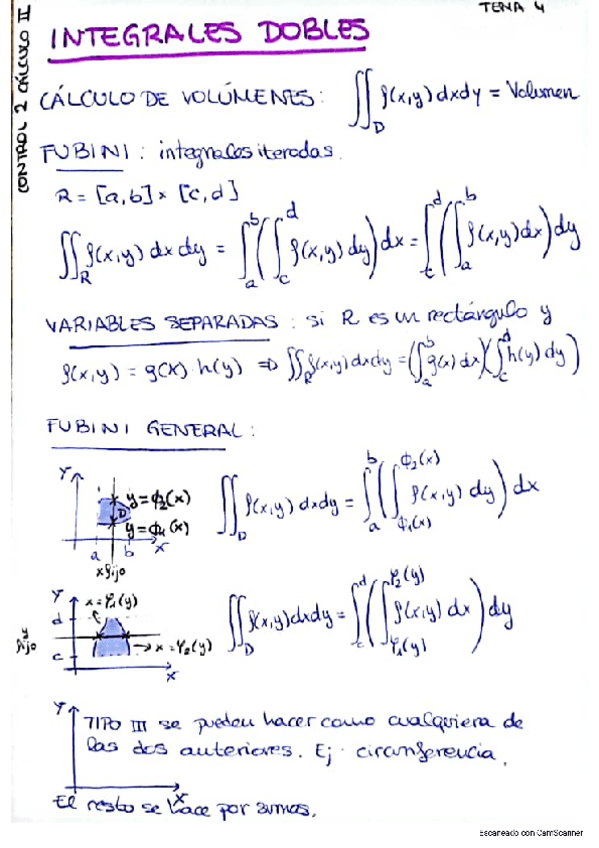 TEMA 4
CONTROL 2 CÁLCULO II
INTEGRALES DOBLES
CÁLCULO DE VOLÚMENES: ∬_D f(x,y) dxdy = Volumen
FUBINI: integrales iteradas.
R = [a,b] × [c,d]
∬_R f(x,y) dx dy = ∫_a^b (∫_c^d f(x,y) dy) dx = ∫_c^d (∫_a^b f(x,y) dx) dy
VARIABLES SEPARADAS: si R es un rectángulo y
f(x,y) = g(x) · h(y) ⇒ ∬_R f(x,y) dxdy = (∫_a^b g(x) dx)(∫_c^d h(y) dy)
FUBINI GENERAL:
Y
y = ϕ2(x)
D
y = ϕ1(x)
a b x
x fijo
∬_D f(x,y) dxdy = ∫_a^b (∫_{ϕ1(x)}^{ϕ2(x)} f(x,y) dy) dx
Y
x = φ1(y)
d
y fijo
→ x = φ2(y)
c
x
∬_D f(x,y) dxdy = ∫_c^d (∫_{φ1(y)}^{φ2(y)} f(x,y) dx) dy
Y
TIPO III se pueden hacer como cualquiera de
las dos anteriores. Ej: circunferencia.
x
El resto se hace por sumas.
Escaneado con CamScanner